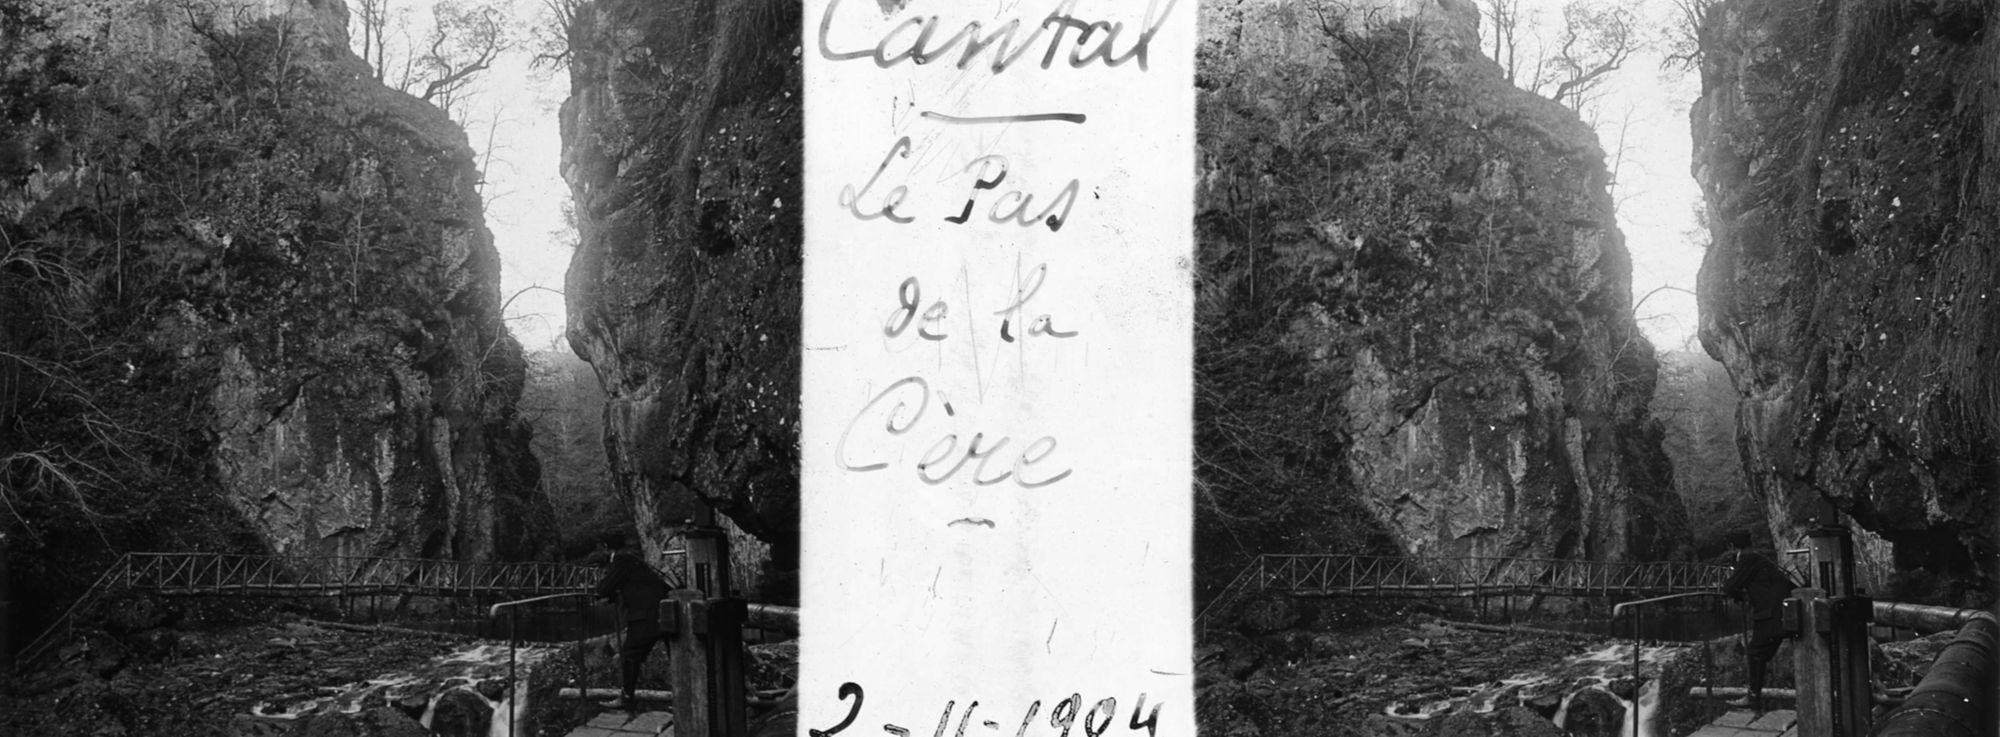 Cantal
Le Pas
de la
Cère
2-11-1904